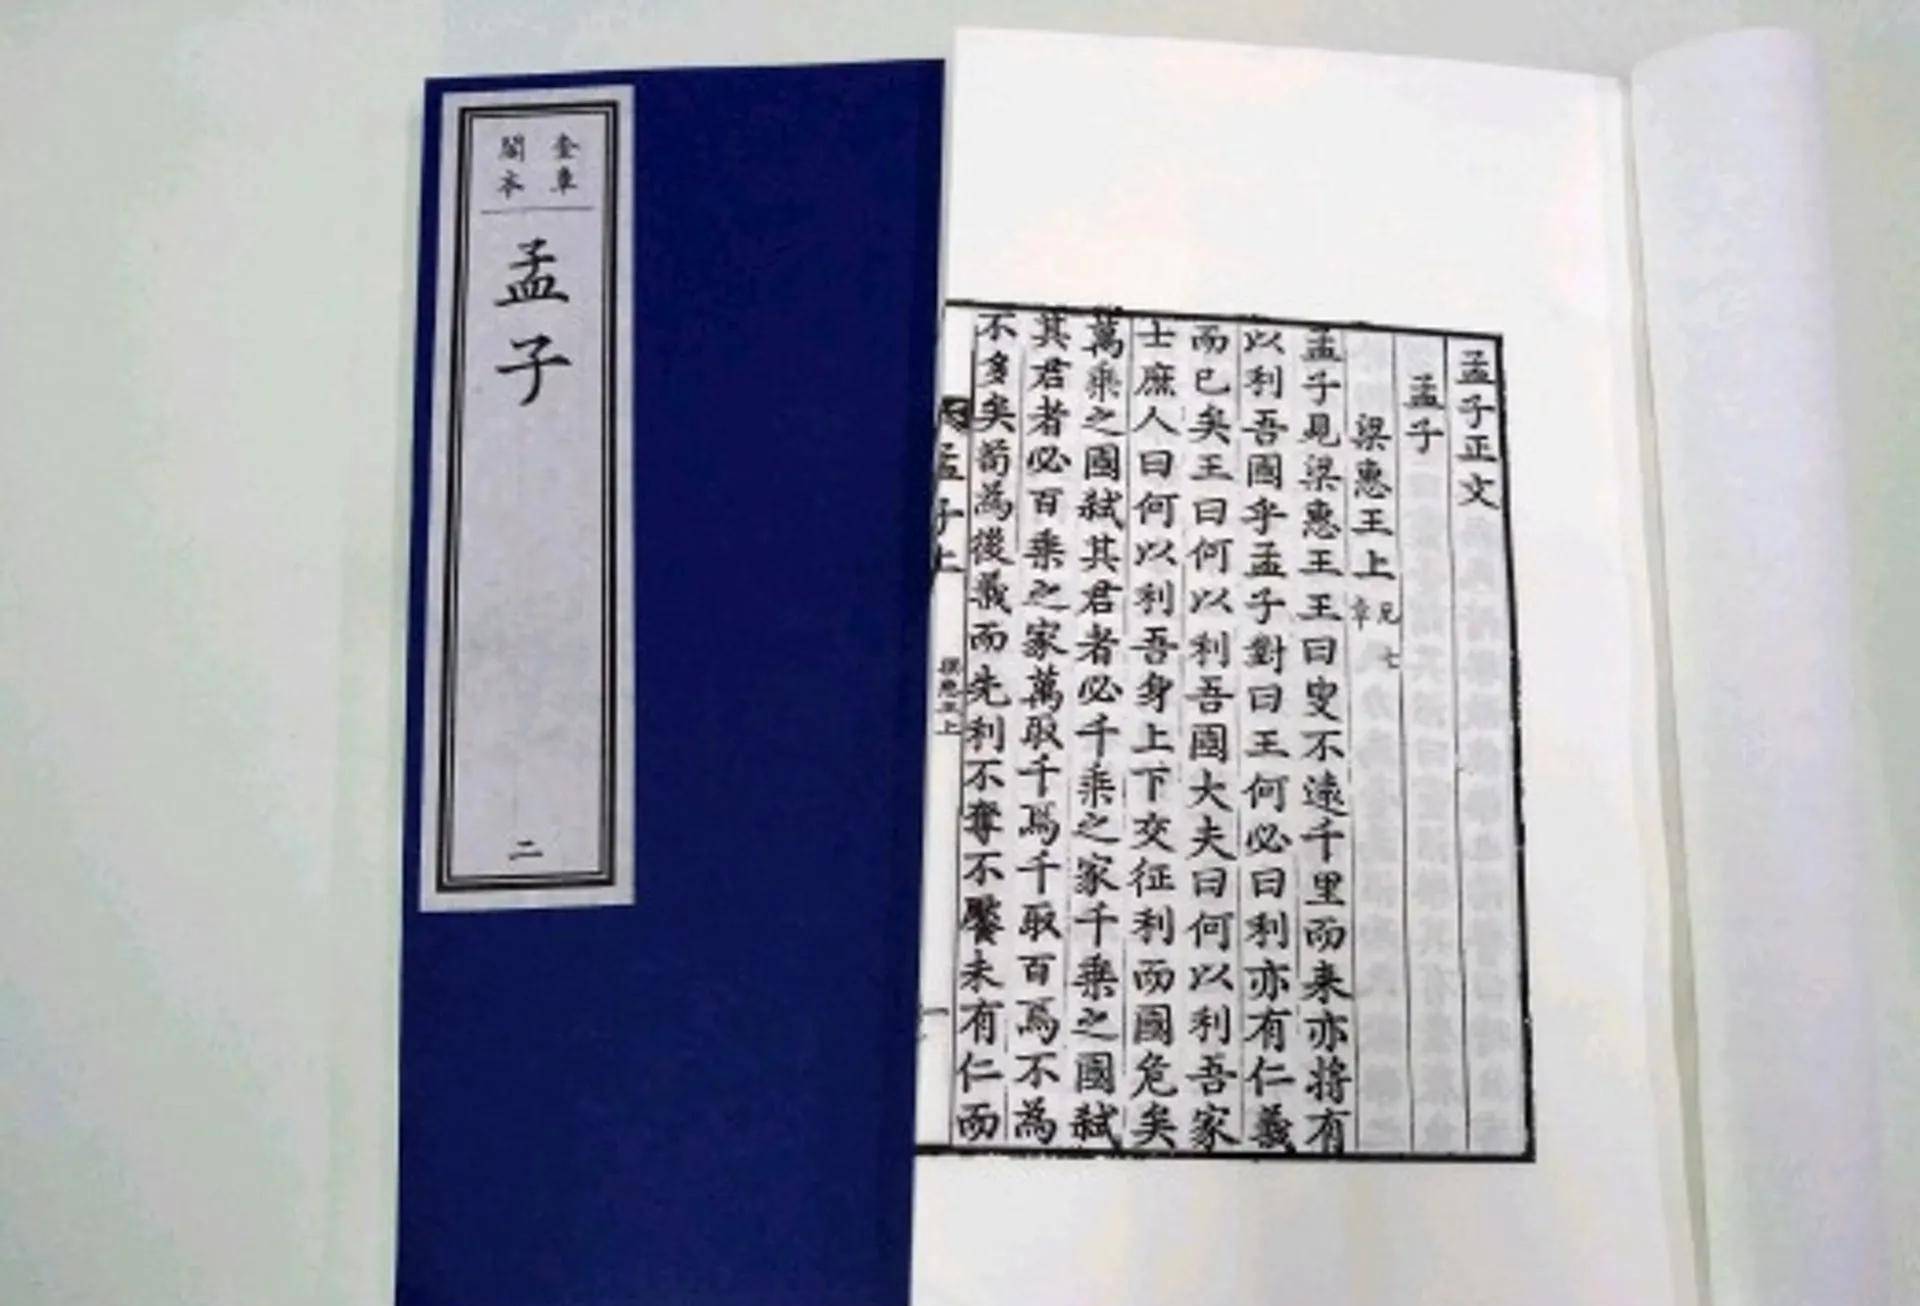 奎章
閣本
孟子
二
孟子正文
孟子
梁惠王上 凡七章
孟子見梁惠王王曰叟不遠千里而来亦將有
以利吾國乎孟子對曰王何必曰利亦有仁義
而已矣王曰何以利吾國大夫曰何以利吾家
士庶人曰何以利吾身上下交征利而國危矣
萬乘之國弑其君者必千乘之家千乘之國弑
其君者必百乘之家萬取千焉千取百焉不為
不多矣苟為後義而先利不奪不饜未有仁而
孟子上 梁惠王上 一